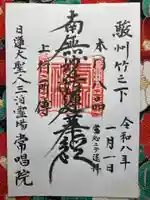 駿州竹之下
令和八年
一月一日
本門八品
南無妙法蓮華経
上行所傳
日蓮大聖人三泊霊場 常唱院